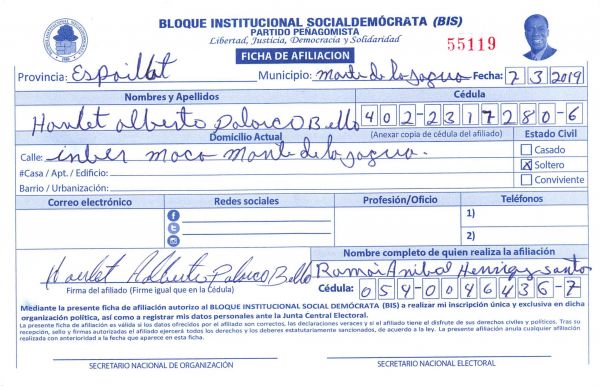 BLOQUE INSTITUCIONAL SOCIALDEMÓCRATA (BIS)
PARTIDO PEÑAGOMISTA
Libertad, Justicia, Democracia y Solidaridad
FICHA DE AFILIACION
55119
Provincia: Espaillat Municipio: Monte de la Jagua Fecha: 7 3 2019
Nombres y Apellidos Cédula
Hamlet Alberto Polanco Bello 402-2317280-6
Domicilio Actual (Anexar copia de cédula del afiliado) Estado Civil
Calle: moca Monte de la Jagua.
Casado
#Casa / Apt. / Edificio: X Soltero
Barrio / Urbanización: Conviviente
Correo electrónico Redes sociales Profesión/Oficio Teléfonos
1)
2)
Hamlet Alberto Polanco Bello
Nombre completo de quien realiza la afiliación
Ramón Anibal Henriquez Santos
Firma del afiliado (Firme igual que en la Cédula) Cédula: 054-0046436-7
Mediante la presente ficha de afiliación autorizo al BLOQUE INSTITUCIONAL SOCIAL DEMÓCRATA (BIS) a realizar mi inscripción única y exclusiva en dicha
organización política, así como a registrar mis datos personales ante la Junta Central Electoral.
La presente ficha de afiliación es válida si los datos ofrecidos por el afiliado son correctos, las declaraciones veraces y si el afiliado tiene el disfrute de sus derechos civiles y políticos. Tras su
recepción, sello y firmas autorizados el afiliado ejercerá todos los derechos y los deberes estatutariamente sancionados, de acuerdo a la ley. La presente afiliación anula cualquier afiliación
realizada con anterioridad a la fecha que aparece en esta ficha.
SECRETARIO NACIONAL DE ORGANIZACIÓN SECRETARIO NACIONAL ELECTORAL